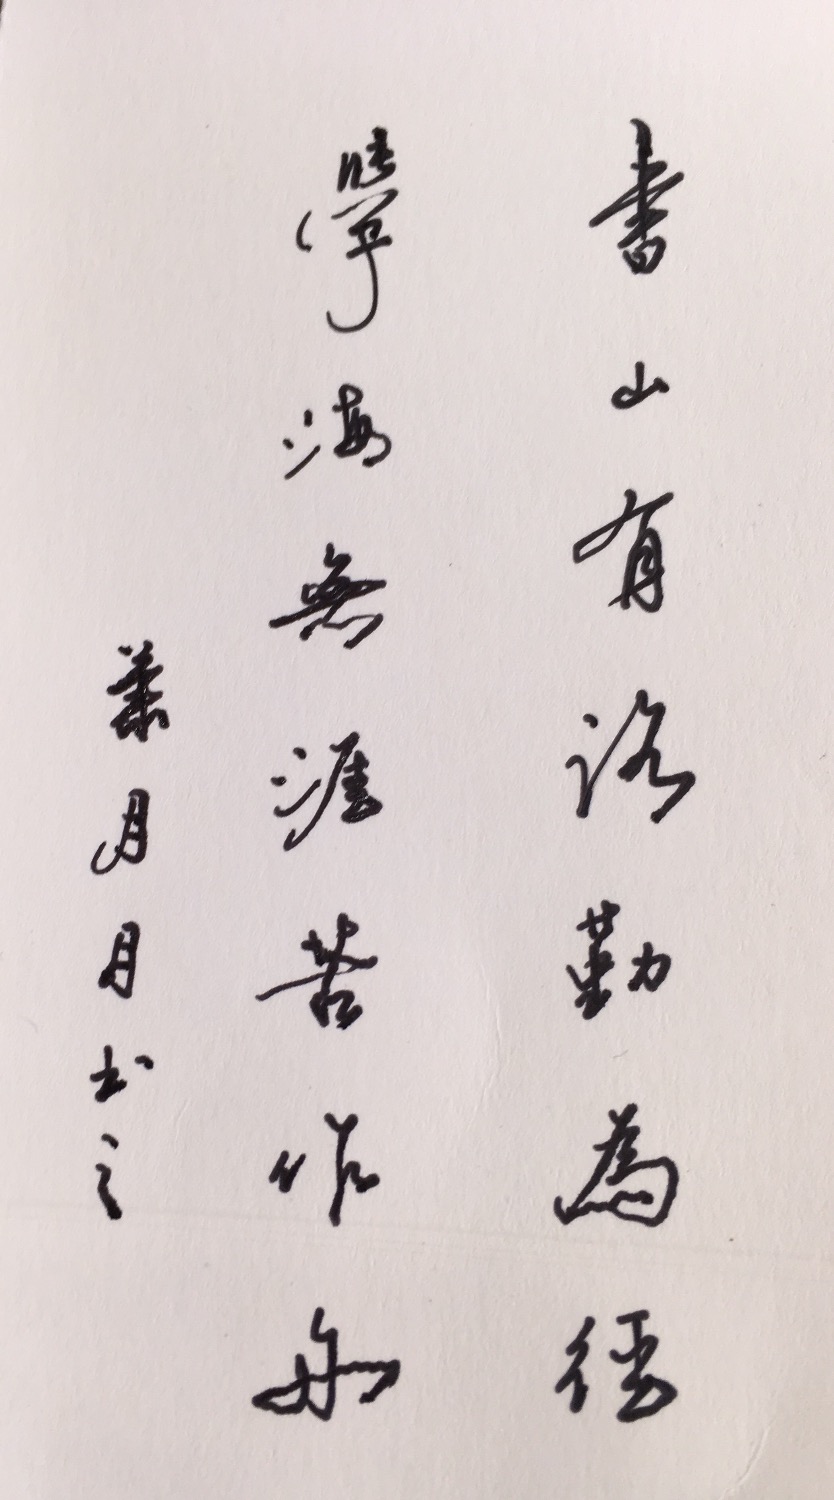 書山有路勤為徑
學海無涯苦作舟
月月书之